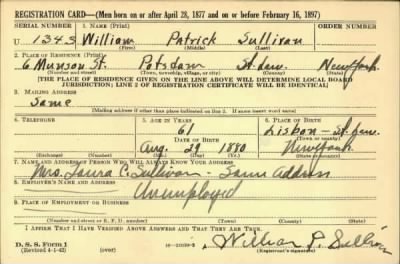 REGISTRATION CARD—(Men born on or after April 28, 1877 and on or before February 16, 1897)
SERIAL NUMBER 1. NAME (Print)
U 1343 William Patrick Sullivan
(First) (Middle) (Last)
2. PLACE OF RESIDENCE (Print)
6 Munson St. Potsdam St. Law. New York
(Number and street) (Town, township, village, or city) (County) (State)
[THE PLACE OF RESIDENCE GIVEN ON THE LINE ABOVE WILL DETERMINE LOCAL BOARD
JURISDICTION; LINE 2 OF REGISTRATION CERTIFICATE WILL BE IDENTICAL]
3. MAILING ADDRESS
Same
[Mailing address if other than place indicated on line 2. If same insert word same]
4. TELEPHONE 5. AGE IN YEARS 6. PLACE OF BIRTH
61 Lisbon - St. Law.
DATE OF BIRTH (Town or county)
Aug. 29 1880 New York
(Exchange) (Number) (Mo.) (Day) (Yr.) (State or country)
7. NAME AND ADDRESS OF PERSON WHO WILL ALWAYS KNOW YOUR ADDRESS
Mrs. Laura C. Sullivan - Same Address
8. EMPLOYER'S NAME AND ADDRESS
Unemployed
9. PLACE OF EMPLOYMENT OR BUSINESS
(Number and street or R. F. D. number) (Town) (County) (State)
I AFFIRM THAT I HAVE VERIFIED ABOVE ANSWERS AND THAT THEY ARE TRUE.
D. S. S. Form 1
(Revised 4-1-42) (over) William P. Sullivan
(Registrant's signature)